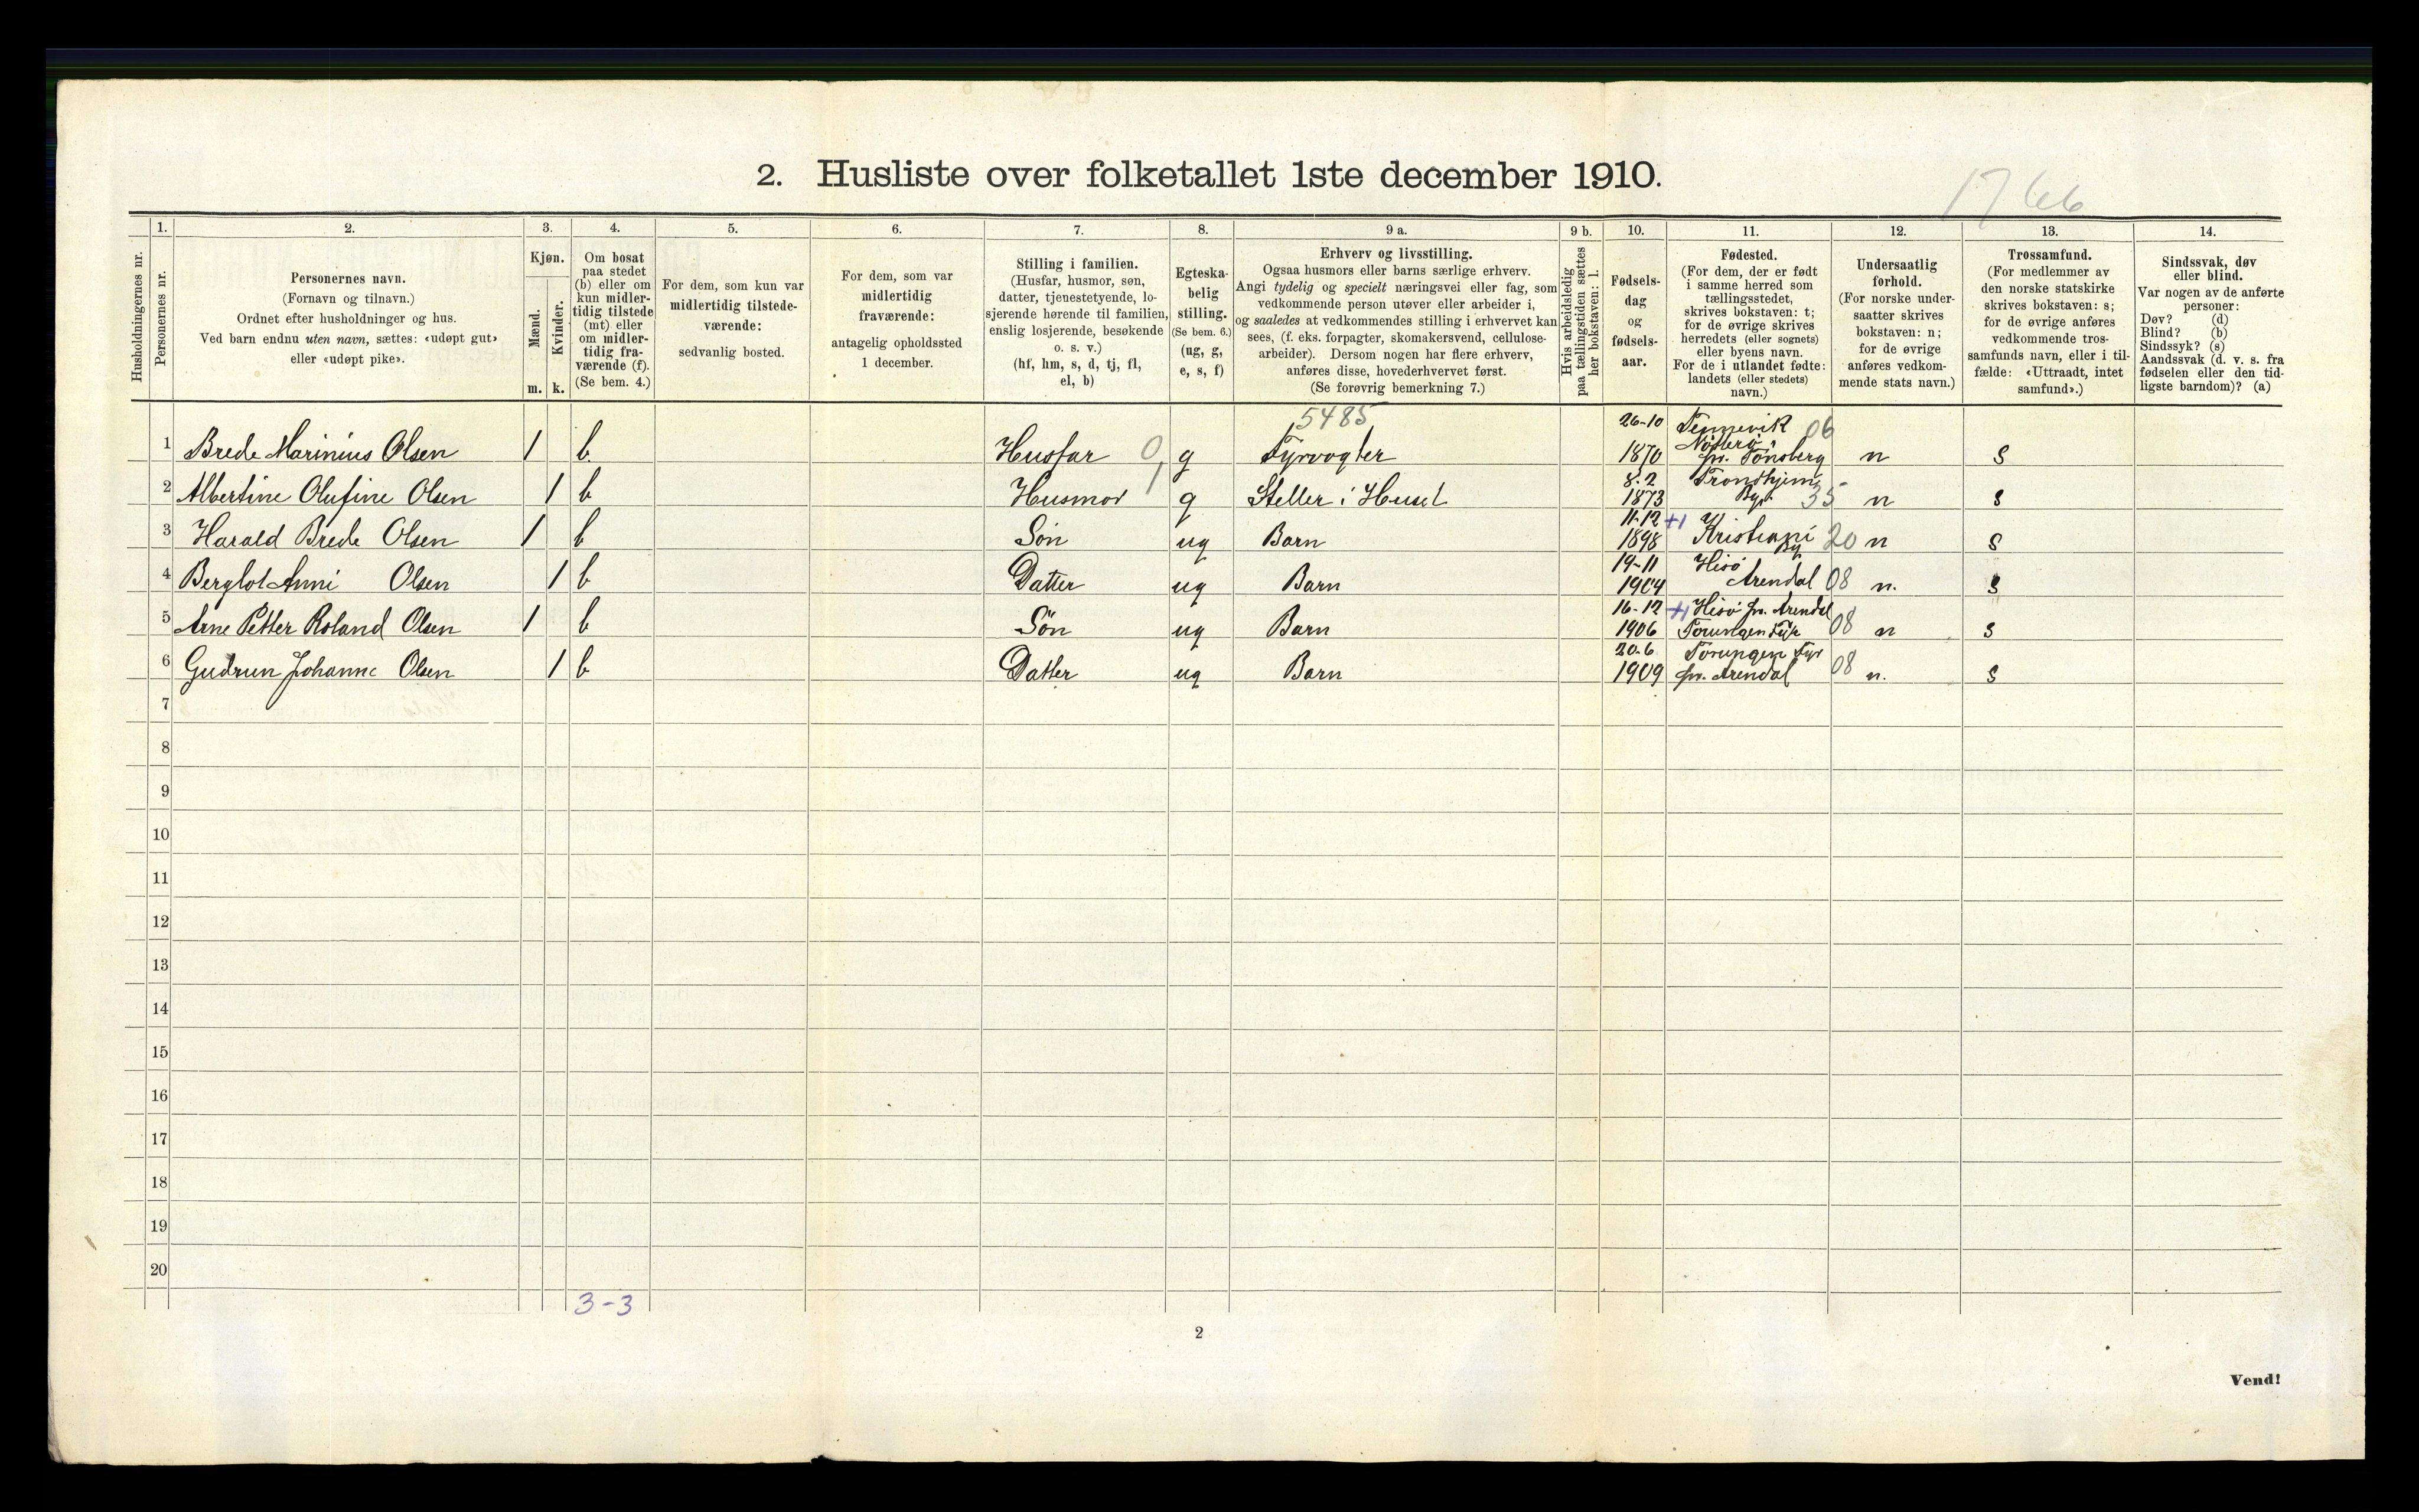 2. Husliste over folketallet 1ste december 1910.
1766
Husholdningernes nr.
1.
Personernes nr.
2.
Personernes navn.
(Fornavn og tilnavn.)
Ordnet efter husholdninger og hus.
Ved barn endnu uten navn, sættes: «udøpt gut»
eller «udøpt pike».
3.
Kjøn.
Mænd.
Kvinder.
m. k.
4.
Om bosat
paa stedet
(b) eller om
kun midler-
tidig tilstede
(mt) eller
om midler-
tidig fra-
værende (f).
(Se bem. 4.)
5.
For dem, som kun var
midlertidig tilstede-
værende:
sedvanlig bosted.
6.
For dem, som var
midlertidig
fraværende:
antagelig opholdssted
1 december.
7.
Stilling i familien.
(Husfar, husmor, søn,
datter, tjenestetyende, lo-
sjerende hørende til familien,
enslig losjerende, besøkende
o. s. v.)
(hf, hm, s, d, tj, fl,
el, b)
8.
Egteska-
belig
stilling.
(Se bem. 6.)
(ug, g,
e, s, f)
9 a.
Erhverv og livsstilling.
Ogsaa husmors eller barns særlige erhverv.
Angi tydelig og specielt næringsvei eller fag, som
vedkommende person utøver eller arbeider i,
og saaledes at vedkommendes stilling i erhvervet kan
sees, (f. eks. forpagter, skomakersvend, cellulose-
arbeider). Dersom nogen har flere erhverv,
anføres disse, hovederhvervet først.
(Se forøvrig bemerkning 7.)
9 b.
Hvis arbeidsledig
paa tællingstiden sættes
her bokstaven: l.
10.
Fødsels-
dag
og
fødsels-
aar.
11.
Fødested.
(For dem, der er født
i samme herred som
tællingsstedet,
skrives bokstaven: t;
for de øvrige skrives
herredets (eller sognets)
eller byens navn.
For de i utlandet fødte:
landets (eller stedets)
navn.)
12.
Undersaatlig
forhold.
(For norske under-
saatter skrives
bokstaven: n;
for de øvrige
anføres vedkom-
mende stats navn.)
13.
Trossamfund.
(For medlemmer av
den norske statskirke
skrives bokstaven: s;
for de øvrige anføres
vedkommende tros-
samfunds navn, eller i til-
fælde: «Uttraadt, intet
samfund».)
14.
Sindssvak, døv
eller blind.
Var nogen av de anførte
personer:
Døv? (d)
Blind? (b)
Sindssyk? (s)
Aandssvak (d. v. s. fra
fødselen eller den tid-
ligste barndom)? (a)
5485
1 Brede Marinius Olsen 1 b Husfar 0 g Fyrvogter 26-10 1870 Tennevik Nøtterø pr. Tønsberg 06 n s
2 Albertine Olufine Olsen 1 b Husmor 1 g Steller i Huset 8.2 1873 Trondhjem By. 35 n s
3 Harald Brede Olsen 1 b Søn ug Barn 11-12 1898 +1 Kristiani By 20 n s
4 Berglot Anni Olsen 1 b Datter ug Barn 19-11 1904 Hisø Arendal 08 n. s
5 Arne Petter Roland Olsen 1 b Søn ug Barn 16-12 1906 +1 Hisø pr. Arendal Torungen Fyr 08 n s
6 Gudrun Johanne Olsen 1 b Datter ug Barn 20.6 1909 Torungen Fyr pr. Arendal 08 n. s
7
8
9
10
11
12
13
14
15
16
17
18
19
20
3-3
2
Vend!